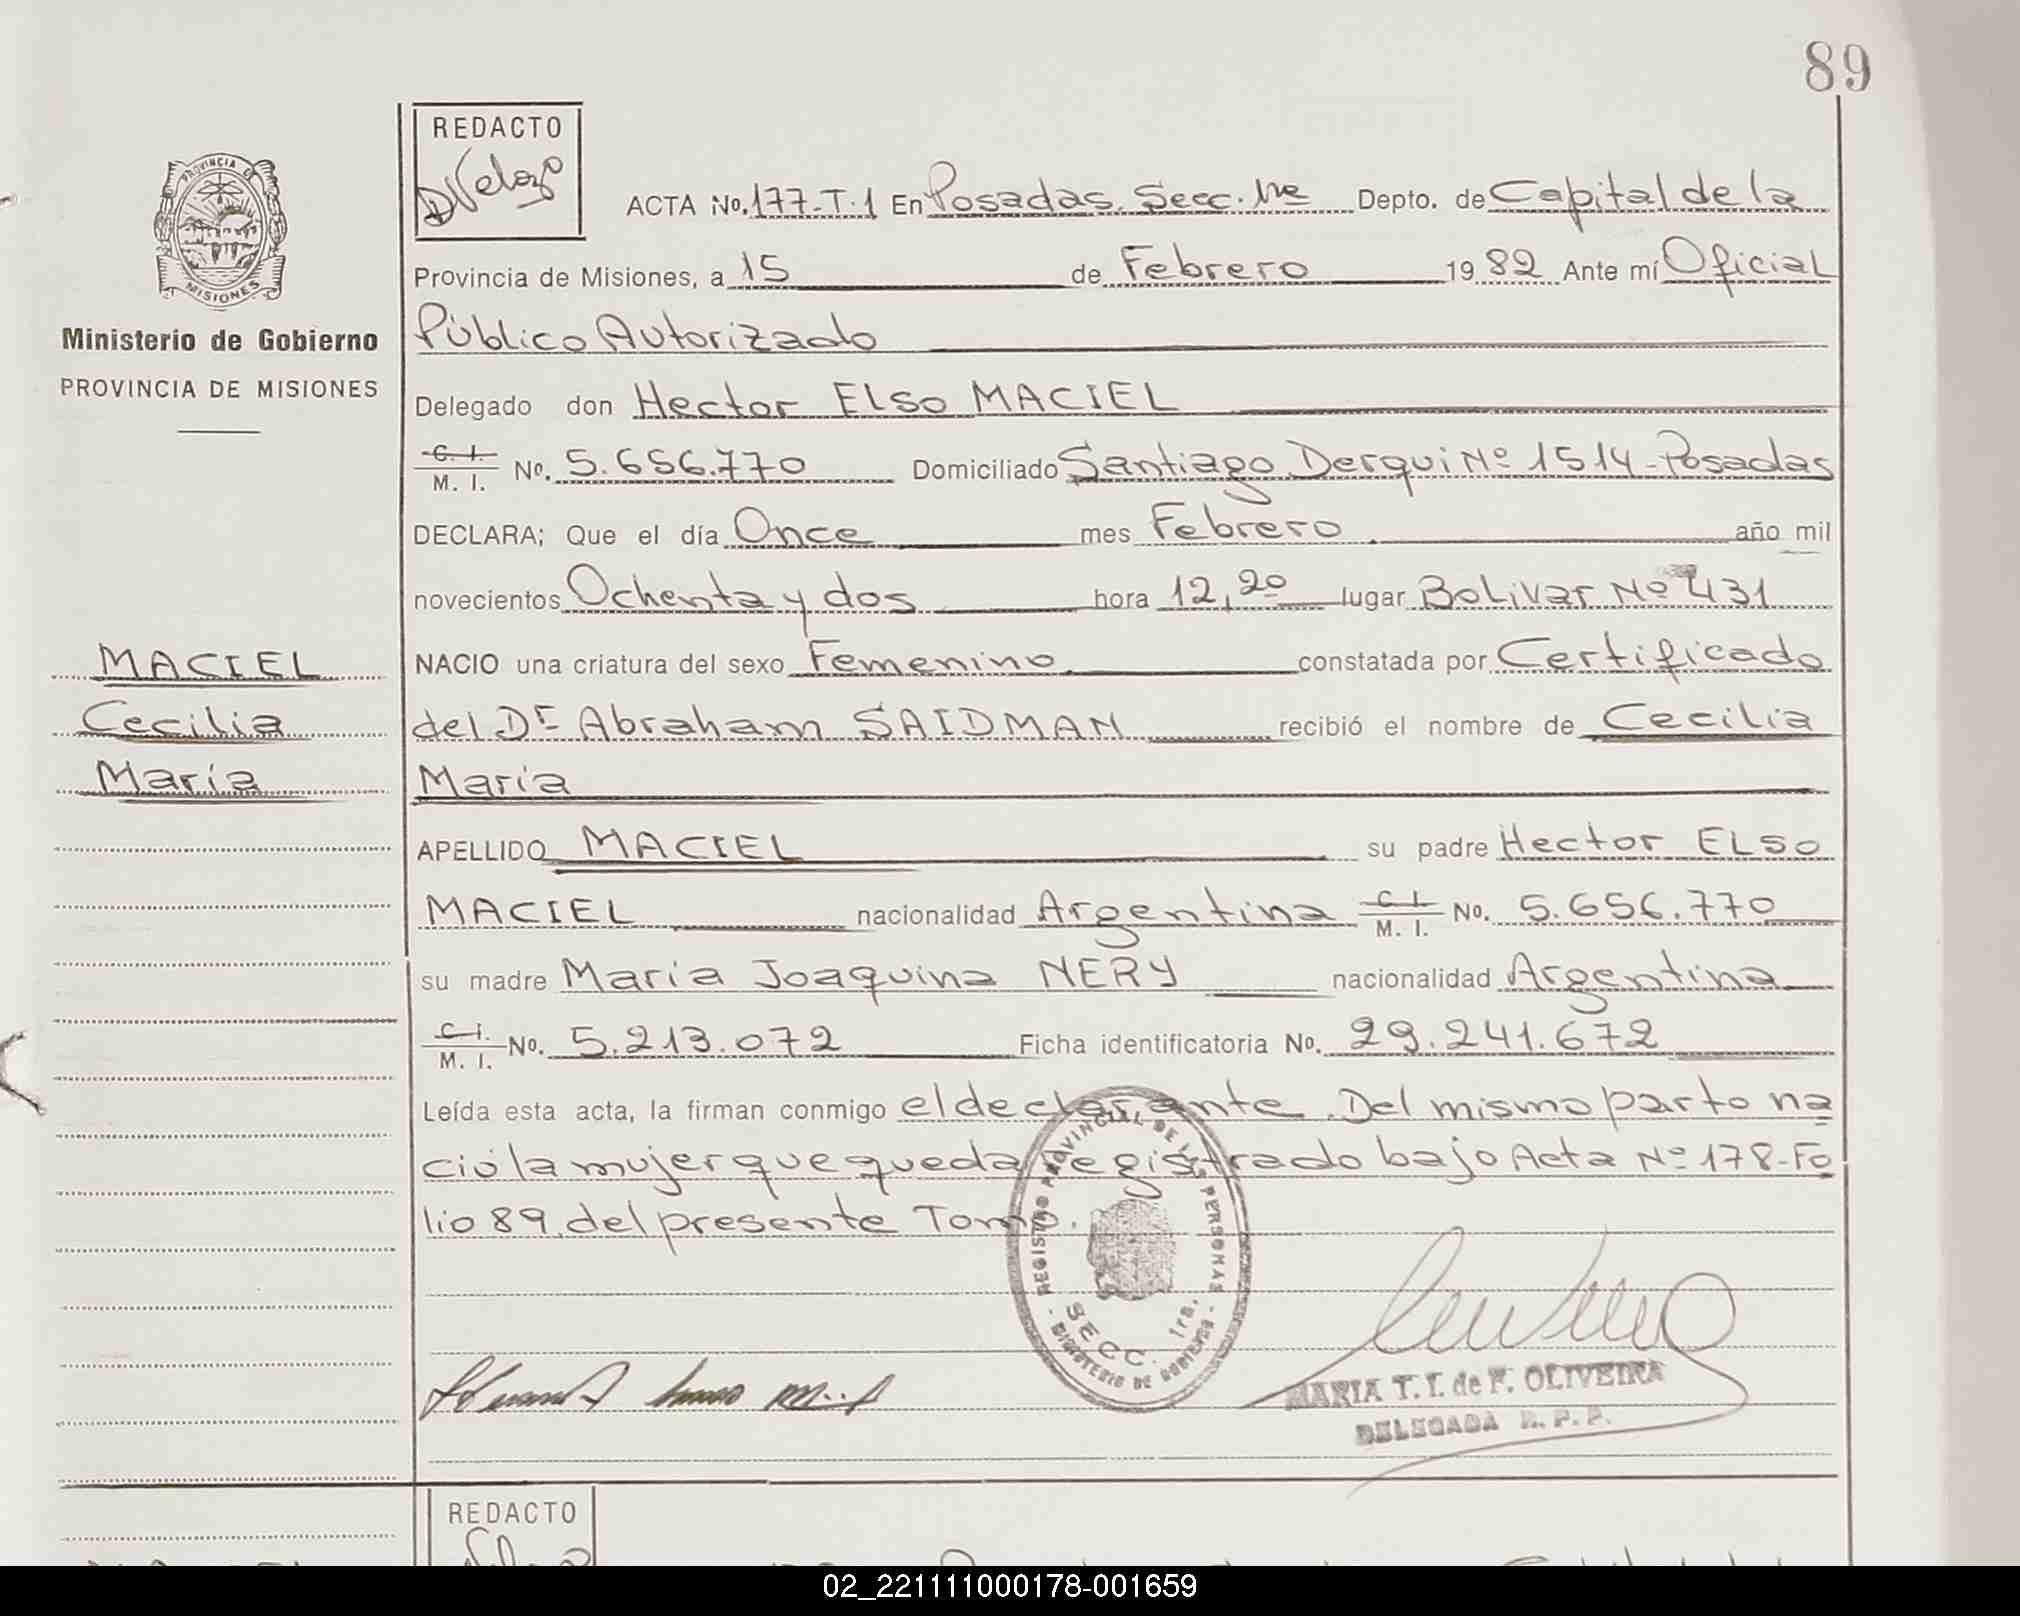 89
REDACTO
DVelozo
ACTA No. 177-T.1 En Posadas. Secc. 1ra Depto. de Capital de la
Provincia de Misiones, a 15 de Febrero 19 82 Ante mí Oficial
Público Autorizado
Delegado don Hector ELso MACIEL
C. I. / M. I. No. 5.656.770 Domiciliado Santiago Derqui Nº 1514-Posadas
DECLARA; Que el día Once mes Febrero año mil
novecientos Ochenta y dos hora 12,20 lugar BoLivar Nº 431
NACIO una criatura del sexo Femenino constatada por Certificado
del Dr Abraham SAIDMAN recibió el nombre de Cecilia
María
APELLIDO MACIEL su padre Hector ELso
MACIEL nacionalidad Argentina C. I. / M. I. No. 5.656.770
su madre María Joaquina NERY nacionalidad Argentina
C. I. / M. I. No. 5.213.072 Ficha identificatoria No. 29.241.672
Leída esta acta, la firman conmigo el declarante. Del mismo parto na
ció la mujer que queda registrado bajo Acta Nº 178-Fo
lio 89 del presente Tomo.
PROVINCIA DE MISIONES
Ministerio de Gobierno
PROVINCIA DE MISIONES
MACIEL
Cecilia
María
REGISTRO PROVINCIAL DE LAS PERSONAS
SECC. 1ra.
MINISTERIO DE GOBIERNO
MARIA T. I. de F. OLIVEIRA
DELEGADA R. P. P.
REDACTO
02_221111000178-001659